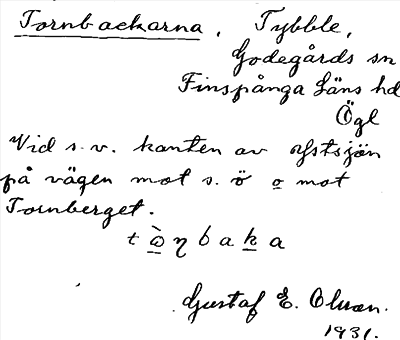 Tornbackarna, Tybble,
Godegårds sn
Finspånga Läns hd
Ögl
Vid s.v. kanten av
på vägen mot s. ö o mot
Tornberget.
t ὼ η b a k a
Gustaf E. Olsson.
1931.